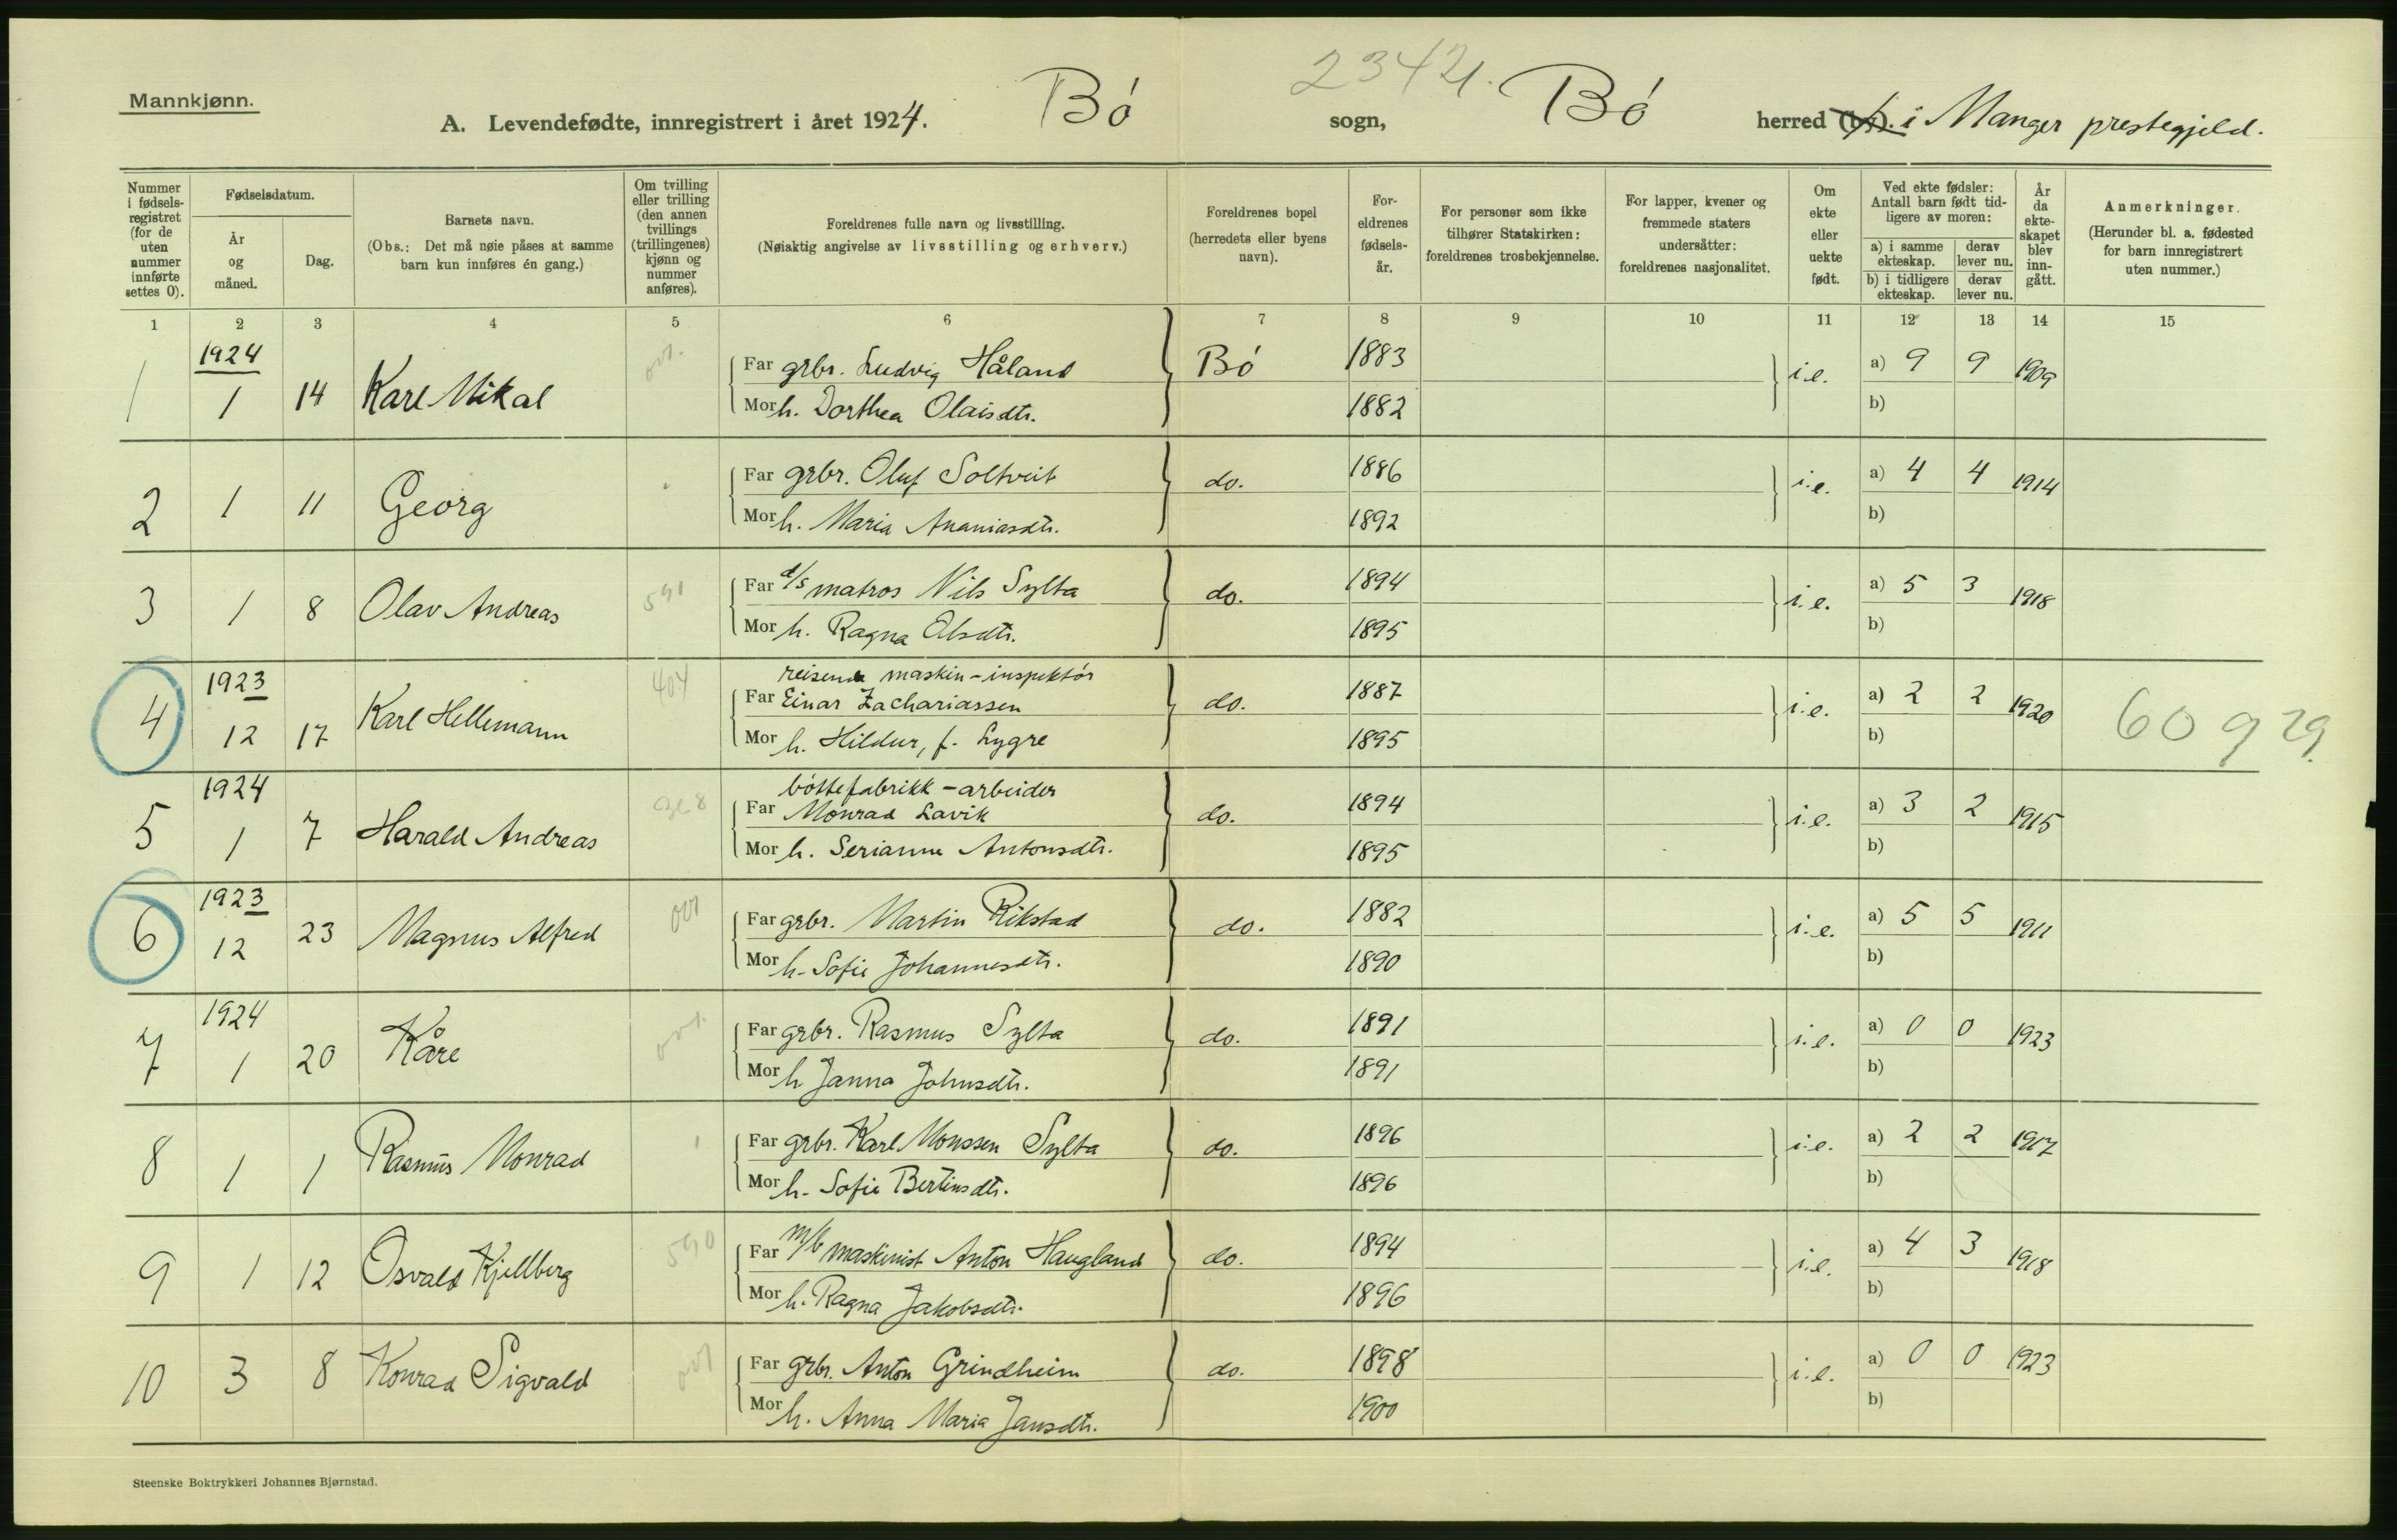 Mannkjønn.
A. Levendefødte, innregistrert i året 1924. Bó sogn, Bó herred (by). i Manger prestegjeld.
2342
Nummer i fødsels-registret (for de uten nummer innførte settes 0).
Fødselsdatum.
År og måned.
Dag.
Barnets navn.
(Obs.: Det må nøie påses at samme barn kun innføres én gang.)
Om tvilling eller trilling (den annen tvillings (trillingenes) kjønn og nummer anføres).
Foreldrenes fulle navn og livsstilling.
(Nøiaktig angivelse av livsstilling og erhverv.)
Foreldrenes bopel (herredets eller byens navn).
For-eldrenes fødsels-år.
For personer som ikke tilhører Statskirken: foreldrenes trosbekjennelse.
For lapper, kvener og fremmede staters undersåtter: foreldrenes nasjonalitet.
Om ekte eller uekte født.
Ved ekte fødsler: Antall barn født tid-ligere av moren:
a) i samme ekteskap. derav lever nu.
b) i tidligere ekteskap. derav lever nu.
År da ekte-skapet blev inn-gått.
Anmerkninger.
(Herunder bl. a. fødested for barn innregistrert uten nummer.)
1 2 3 4 5 6 7 8 9 10 11 12 13 14 15
1924
1 1 14 Karl Mikal 001. Far grbr. Ludvig Håland Bó 1883 i.e. a) 9 9 1909
Mor h. Dorthea Olaisdtr. 1882 b)
2 1 11 Georg Far grbr. Oluf Soltveit do. 1886 i.e. a) 4 4 1914
Mor h. Maria Ananiasdtr. 1892 b)
3 1 8 Olav Andreas 591 Far d/s matros Nils Sylta do. 1894 i.e. a) 5 3 1918
Mor h. Ragna Olsdtr. 1895 b)
1923 reisende maskin-inspektór
4 12 17 Karl Hellemann 404 Far Einar Zachariassen do. 1887 i.e. a) 2 2 1920 60 9 29.
Mor h. Hildur, f. Lygre 1895 b)
1924 bóttefabrikk-arbeider
5 1 7 Harald Andreas Far Monrad Lavik do. 1894 i.e. a) 3 2 1915
Mor h. Serianne Antonsdtr. 1895 b)
1923
6 12 23 Magnus Alfred 001 Far grbr. Martin Rikstad do. 1882 i.e. a) 5 5 1911
Mor h. Sofie Johannesdtr. 1890 b)
1924
7 1 20 Kåre 001. Far grbr. Rasmus Sylta do. 1891 i.e. a) 0 0 1923
Mor h Janna Johnsdtr. 1891 b)
8 1 1 Rasmus Monrad Far grbr. Karl Monssen Sylta do. 1896 i.e. a) 2 2 1917
Mor h. Sofie Bertinsdtr. 1896 b)
9 1 12 Osvald Kjellberg 590 Far m/b maskinist Anton Haugland do. 1894 i.e. a) 4 3 1918
Mor h. Ragna Jakobsdtr. 1896 b)
10 3 8 Konrad Sigvald 001 Far grbr. Anton Grindheim do. 1898 i.e. a) 0 0 1923
Mor h. Anna Maria Jansdtr. 1900 b)
Steenske Boktrykkeri Johannes Bjørnstad.